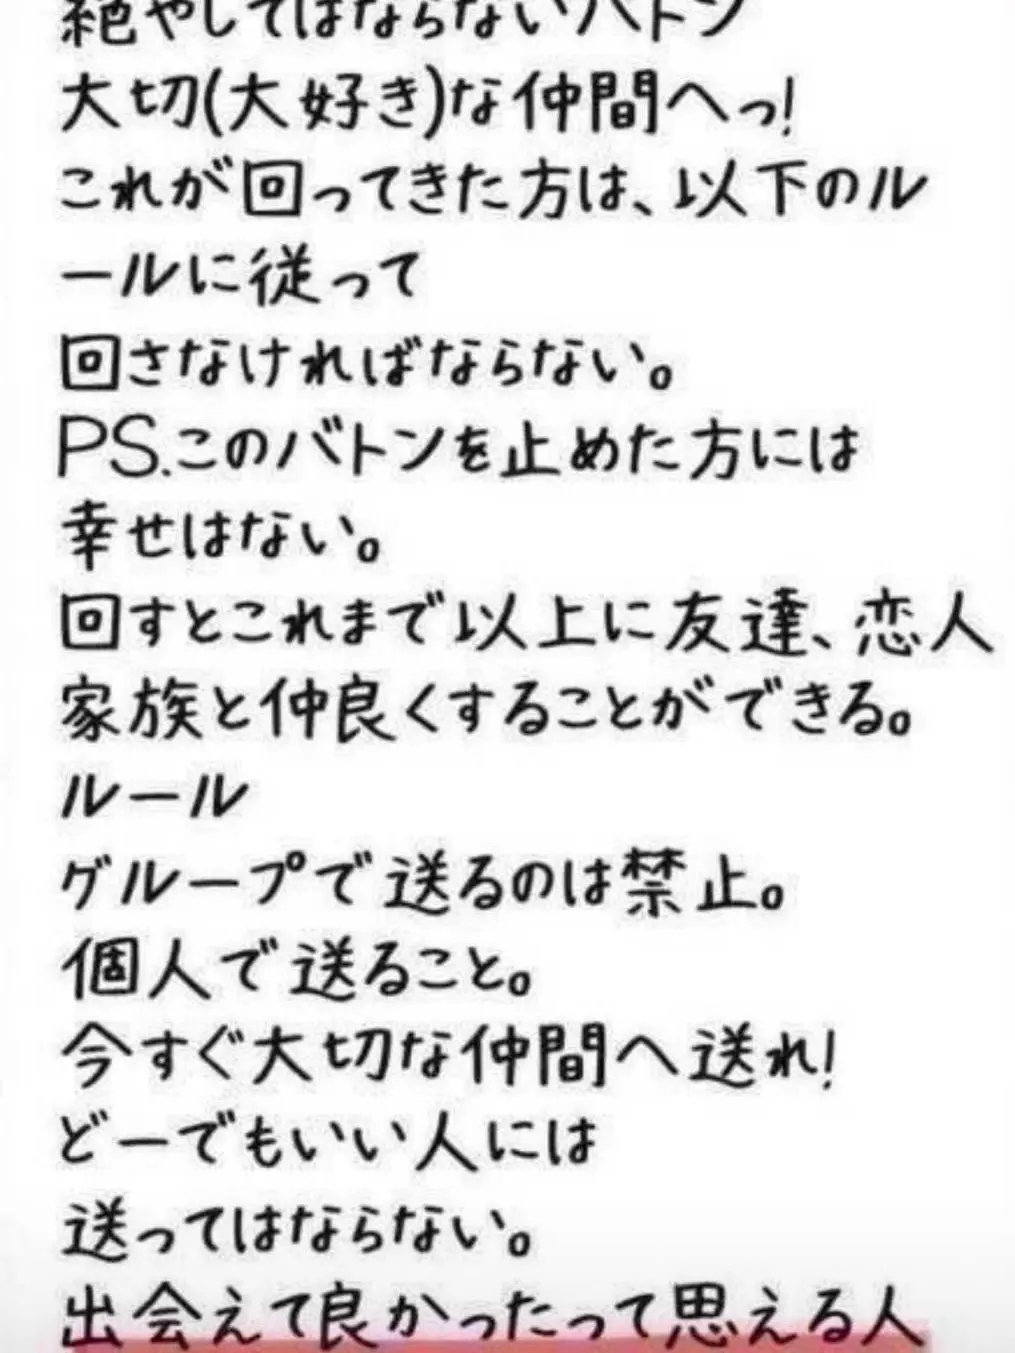 絶やしてはならないバトン
大切(大好き)な仲間へっ!
これが回ってきた方は、以下のル
ールに従って
回さなければならない。
PS.このバトンを止めた方には
幸せはない。
回すとこれまで以上に友達、恋人
家族と仲良くすることができる。
ルール
グループで送るのは禁止。
個人で送ること。
今すぐ大切な仲間へ送れ!
どーでもいい人には
送ってはならない。
出会えて良かったって思える人